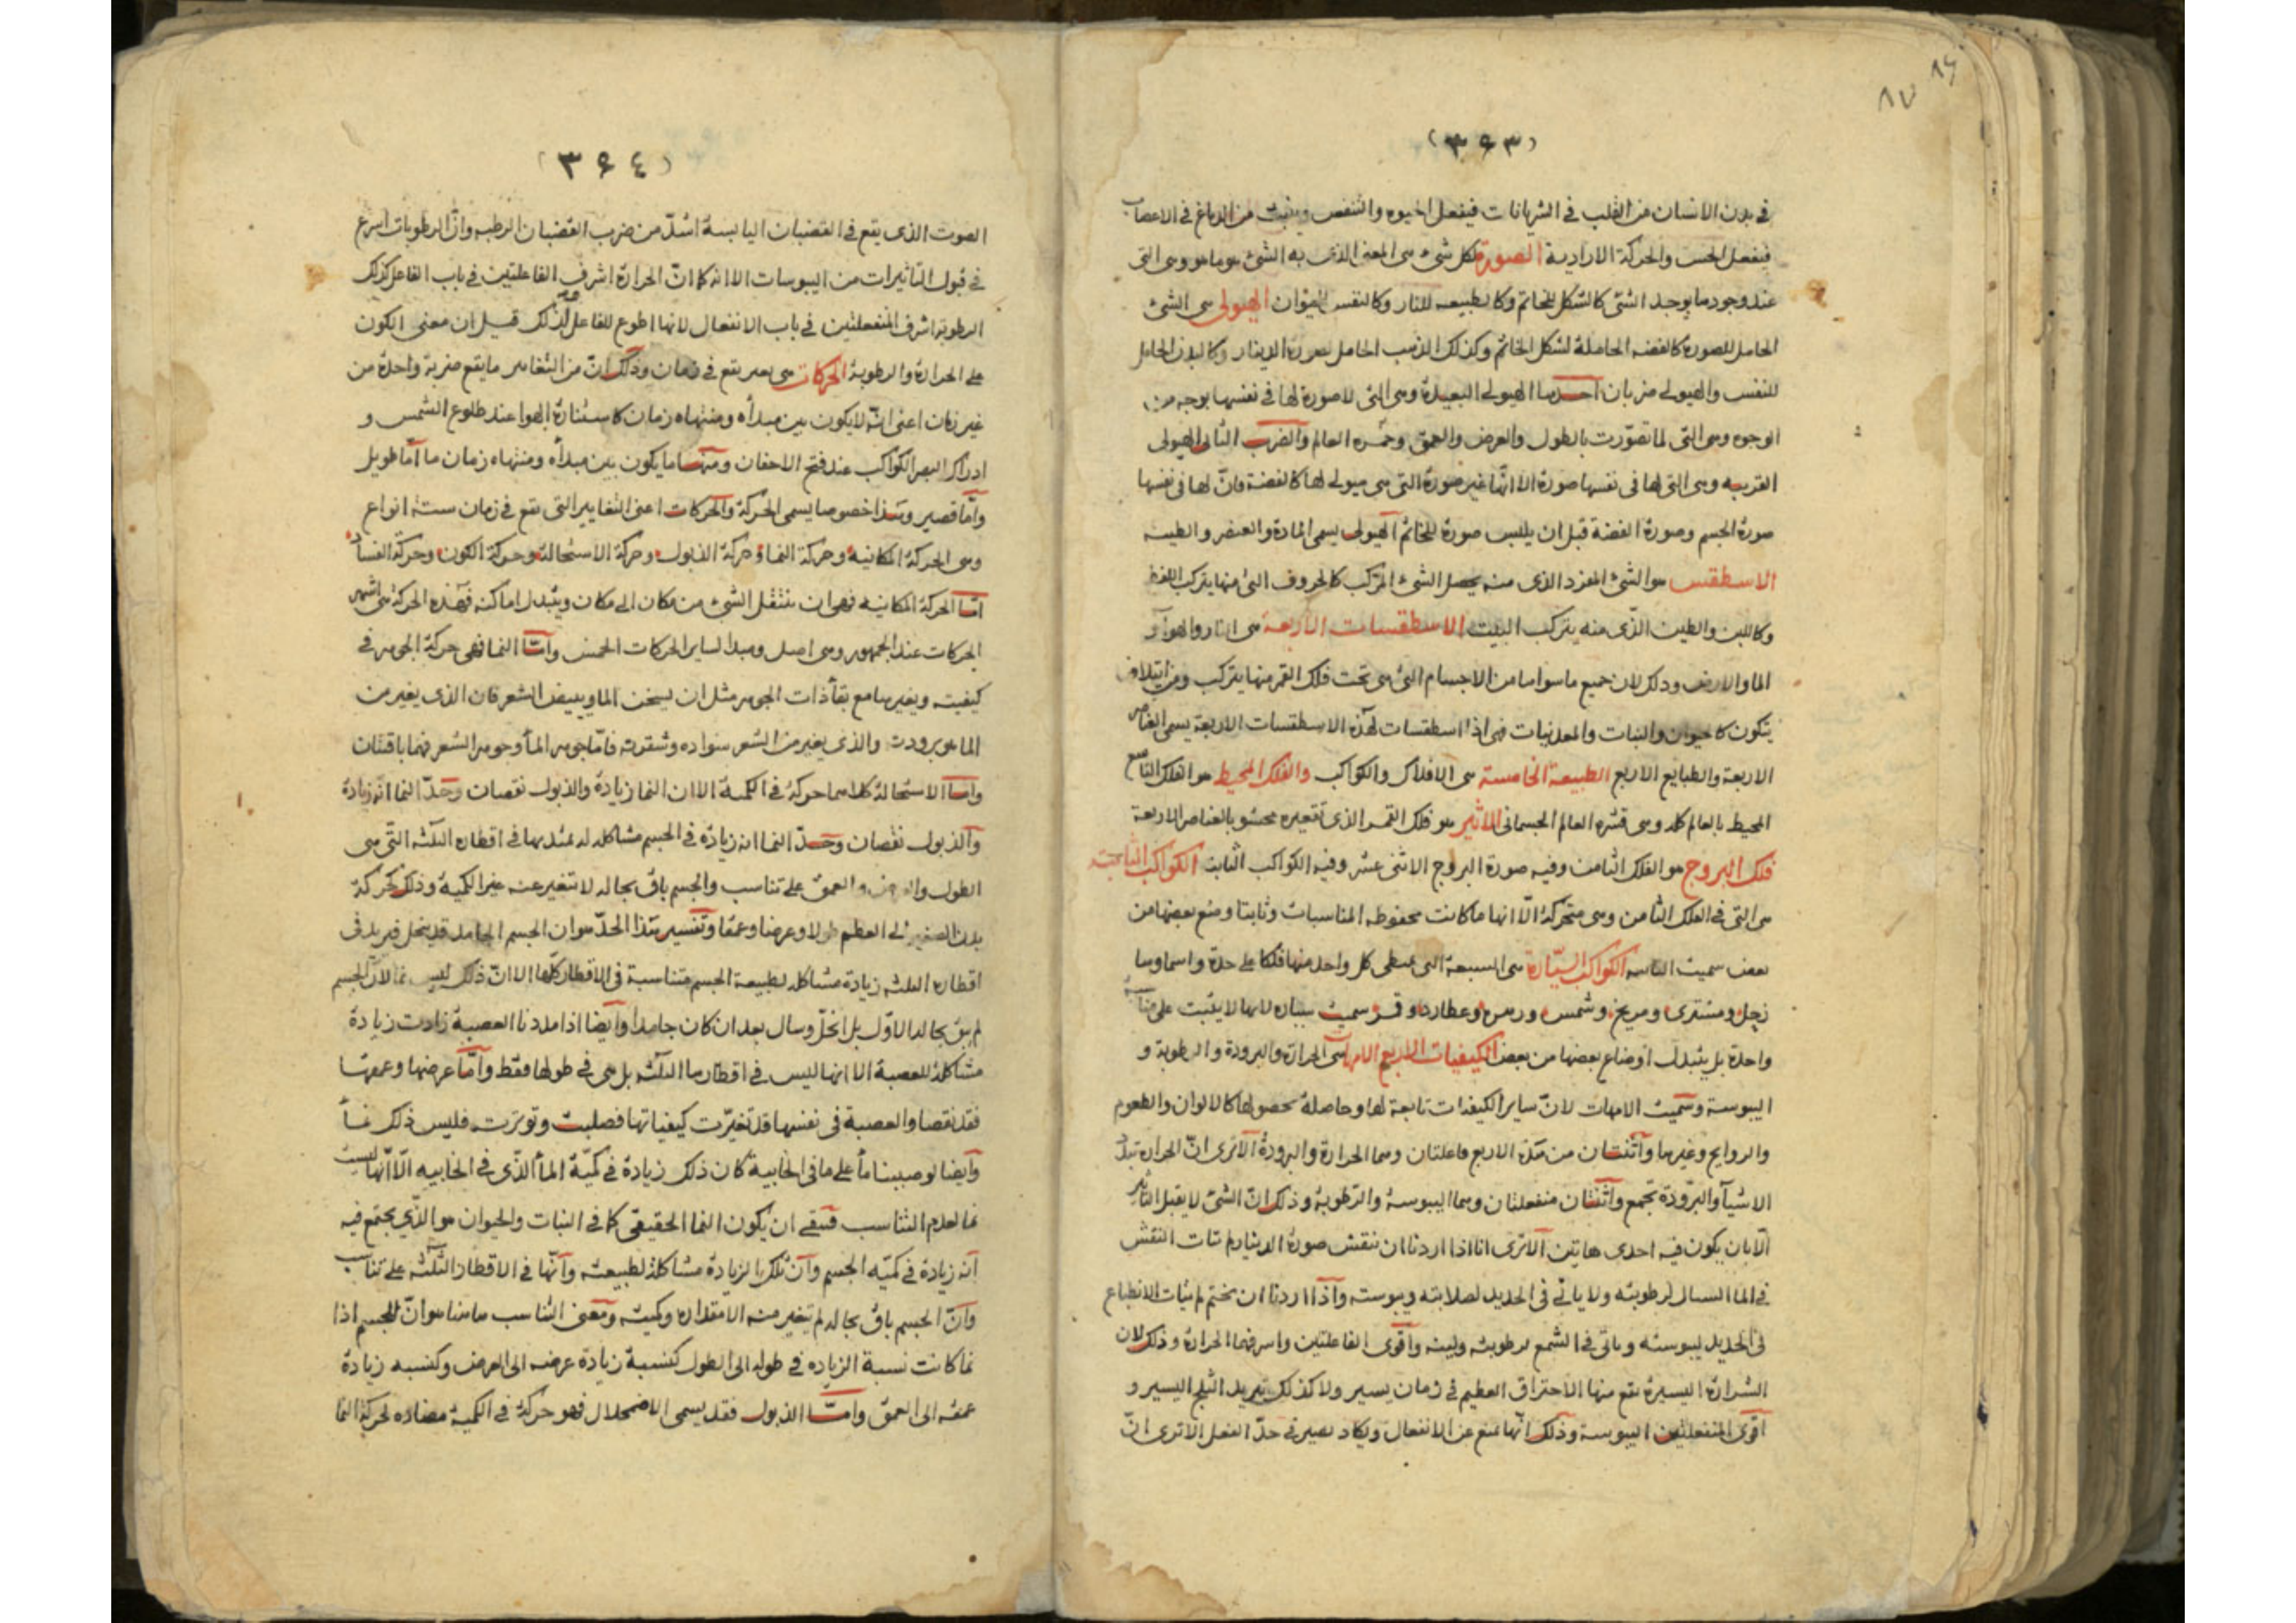 ٨٦
٨٧
(٣۶٣)
في بدن الانسان من القلب في الشريانات فيفعل الحيوه والتنفس وينبث من الدماغ في الاعصاب
فيفعل الحس والحركة الارادية الصورة لكل شيء هي المعنى الذي به الشيء هو ما هو وهي التي
عند وجودها يوجد الشئ كالشكل للخاتم وكالطبيعه للنار وكالنفس للحيوان الهيولى هي الشئ
الحامل للصورة كالفضه الحاملة لشكل الخاتم وكذلك الذهب الحامل لصورة الدينار وكالبدن الحامل
للنفس والهيولى ضربان احدهما الهيولى البعيدة وهي التي لا صورة لها في نفسها بوجه من
الوجوه وهي التي لما تصوّرت بالطول والعرض والعمق العالم والضرب الثاني الهيولى
القريبه وهي التي لها في نفسها صورة الا انها غير صورة التي هي هيولى لها كالفضة فانّ لها في نفسها
صورة الجسم وصورة الفضة قبل ان يلبس صورة للخاتم الهيولى يسمى المادة والعنصر والطينه
الاسطقس هو الشئ المفرد الذي منه يحصل الشئ المركب كالحروف التي منها يتركب اللفظ
وكاللبن والطين الذي منه يتركب البيت الاسطقسات الاربعة هي النار والهوآ و
الما والارض وذلك لان جميع ما سواها من الاجسام التي هي تحت فلك القمر منها يتركب ومن ايتلاف
يتكون كالحيوان والنبات والمعدنيات فهي اذا اسطقسات لهذه الاسطقسات الاربعة يسمى العناصر
الاربعة والطبايع الاربع الطبيعة الخامسة هي الافلاك والكواكب والفلك المحيط هو الفلك التاسع
المحيط بالعالم كله وهي قشره العالم الجسماني الاثير هو فلك القمر الذي تقعيره محشو بالعناصر الاربعة
فلك البروج هو الفلك الثامن وفيه صورة البروج الاثنى عشر وفيه الكواكب الثابت الكواكب الثابتة
هي التي في الفلك الثامن وهي متحركة الّا انها ما كانت محفوظه المناسبات وثابتا وضع بعضها من
بعض سميت الثابته الكواكب السيّارة هي السبعة التي يعطى كل واحد منها فلكا على حدة واسماوها
زحل ومشترى ومريخ وشمس وزهره وعطارد وقمر سميت سياره لانها لا يثبت على
واحدة بل يتبدل اوضاع بعضها من بعض الكيفيات الاربع الامهات هي الحرارة والبرودة والرطوبة و
اليبوسة وسميت الامهات لانّ ساير الكيفيات تابعة لها وحاصلة بحصولها كالالوان والطعوم
والروايح وغيرها واثنتان من هذه الاربع فاعلتان وهما الحرارة والبرودة الا ترى انّ الحراره تبدّد
الاشيآ والبرودة تجمع واثنتان منفعلتان وهما اليبوسة والرطوبة وذلك انّ الشئ لا يقبل التأثير
الّا بان يكون فيه احدى هاتين الا ترى انا اذا اردنا ان ننقش صورة الدينار لم تتأت النقش
في الما السيال لرطوبته ولا ياتى في الحديد لصلابته ويبوسته واذا اردنا ان نختم لم يتأت الانطباع
في الحديد ليبوسته وياتى في الشمع لرطوبته ولينه واقوى الفاعلتين واسرفهما الحرارة وذلك لان
الشرارة اليسيرة يقع منها الاحتراق العظيم في زمان يسير ولا كذلك تبريد الثلج اليسير و
اقوى المنفعلتين اليبوسة وذلك انّها تمنع عن الانفعال ويكاد يصير في حدّ الفعل الا ترى انّ
(٣۶٤)
الصوت الذي يقع في القضبان اليابسة اشدّ من ضرب القضبان الرطبه وانّ الرطوبات اسرع
في قبول التاثيرات من اليبوسات الا انه كما انّ الحرارة اشرف الفاعلتين في باب الفاعل كذلك
الرطوبة اشرف المنفعلتين في باب الانفعال لانها اطوع للفاعل ولذلك قيل ان معنى الكون
على الحرارة والرطوبة الحركات هي تغير يقع في زمان وذلك انّ من التغاير ما يقع ضربة واحدة من
غير زمان اعنى انّه لا يكون بين مبدأه ومنتهاه زمان كاستنارة الهوا عند طلوع الشمس و
ادراك البصر الكواكب عند فتح الاجفان ومنها ما يكون بين مبدأه ومنتهاه زمان ما امّا طويل
وامّا قصير وهذا خصوصا يسمى الحركة والحركات اعنى التغايير التي تقع في زمان ستة انواع
وهي الحركة المكانية وحركة النما وحركة الذبول وحركة الاستحالة وحركة الكون وحركة الفساد
امّا الحركة المكانيه فهو ان ينتقل الشئ من مكان الى مكان ويتبدل اماكنه فهذه الحركة هي اشهر
الحركات عند الجمهور وهي اصل ومبدا لساير الحركات الخمس وامّا النما فهي حركة الجوهر في
كيفيته ويغيرها مع بقا ذات الجوهر مثل ان يسخن الما ويبيض الشعر فان الذي يغير من
الما هو برودته والذي يغير من الشعر سواده وشقرته فامّا جوهر المأ وجوهر الشعر فهما باقيتان
وامّا الاستحالة كلاهما حركة في الكمية الا ان النما زيادة والذبول نقصان وحدّ النما انه زيادة
والذبول نقصان وحدّ النما انه زيادة في الجسم مشاكله له تمتد بها في اقطاره الثلثه التي هي
الطول والعرض والعمق على تناسب والجسم باق بحاله لا تتغير عنه غير الكمية وذلك كحركة
بدن الصغير الى العظم طولا وعرضا وعمقا وتفسير هذا الحدّ هو ان الجسم الجامد قد ينحل فيزيد في
اقطاره الثلثه زيادة مشاكله لطبيعة الجسم متناسبة في الاقطار كلّها الا انّ ذلك ليس نما لانّ الجسم
لم يبق بحاله الاوّل بل انحلّ وسال بعد ان كان جامدا وايضا اذا مددنا العصبة زادت زيادة
مشاكلة للعصبة الا انها ليس في اقطارها الثلثه بل هي في طولها فقط وامّا عرضها وعمقها
فقد نقصا والعصبة في نفسها قد تغيرت كيفياتها فصلبت وتوترت فليس ذلك نمأ
وايضا لو صببنا مأ على ما في الخابية كان ذلك زيادة في كميّة المأ الذّي في الخابيه الّا انّها ليست
نما لعدم التناسب فبقى ان يكون النما الحقيقي كما في النبات والحيوان هو الذّي يجتمع فيه
انه زيادة في كميّه الجسم وان تلك الزيادة مشاكلة لطبيعته وانّها في الاقطار الثلثه على تناسب
وانّ الجسم باق بحاله لم يتغير منه الا مقداره وكميته ومعنى التناسب هاهنا هو انّ الجسم اذا
نما كانت نسبة الزياده في طوله الى الطول كنسبة زيادة عرضه الى العرض وكنسبه زيادة
عمقه الى العمق وامّا الذبول فقد يسمى الاضمحلال فهو حركة في الكمية مضاده لحركة النما